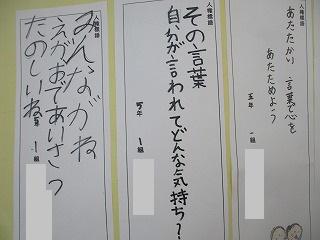 人権標語
あたたかい 言葉で心を
あたためよう
五年 一組
人権標語
その言葉
自分が言われてどんな気持ち?
年 1組
人権標語
みんながね
えがおであいさつ
たのしいね
年 1組